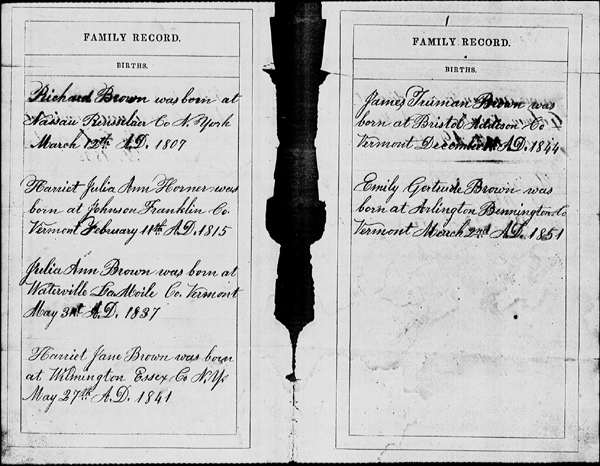 FAMILY RECORD.
BIRTHS.
Richard Brown was born at
Nassau Rensselier Co N. York
March 12th A.D. 1807
Harriet Julia Ann Horner was
born at Johnson Franklin Co.
Vermont February 11th A.D. 1815
Julia Ann Brown was born at
Waterville La Moile Co. Vermont
May 31st A.D. 1837
Harriet Jane Brown was born
at Wilmington Essex Co N.Y.
May 27th A.D. 1841
FAMILY RECORD.
BIRTHS.
James Truman Brown was
born at Bristol Addison Co
Vermont December A.D. 1844
Emily Gertrude Brown was
born at Arlington Bennington Co
Vermont March 2nd A.D. 1851